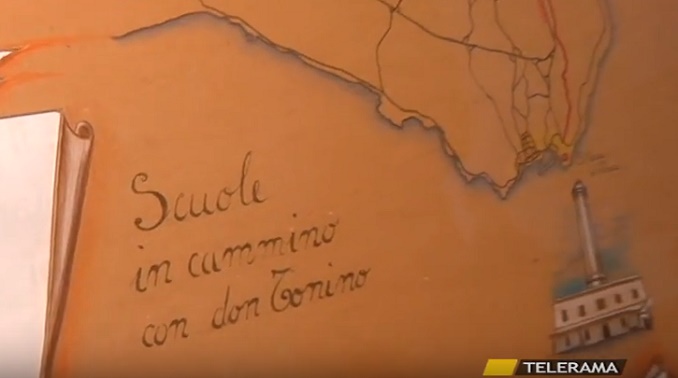 Scuole
in cammino
con don Tonino
TELERAMA